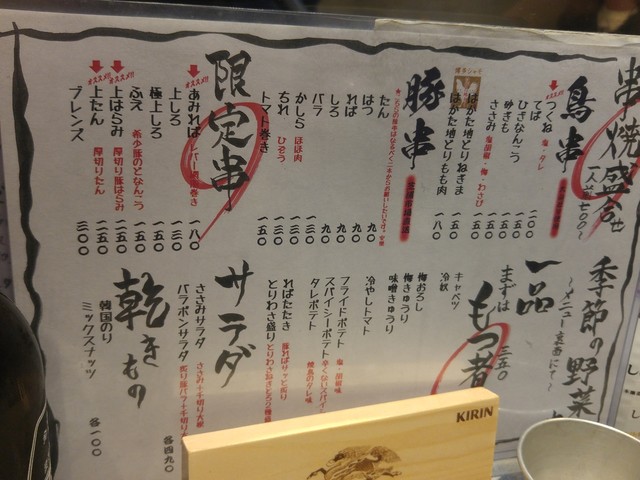 串焼盛合せ
一人前七〇〇〜
鳥串
オススメ!!
つくね 塩・タレ
てば 二〇〇
ひざなんこつ 一五〇
砂ぎも 一五〇
ささみ 塩胡椒・梅・わさび 一五〇
はかた地どりねぎま 一五〇
はかた地どりもも肉 一八〇
豚串
たん 九〇
はつ 九〇
ればー 九〇
しろ 九〇
バラ 一三〇
かしら ほほ肉 一三〇
ちれ ひぞう 一三〇
トマト巻き 一五〇
限定串
オススメ!!
あみればー 一八〇
上しろ 一三〇
極上しろ 一五〇
ふえ 希少豚のどなんこつ 一五〇
オススメ!!
上はらみ 厚切り豚はらみ 二五〇
オススメ!!
上たん 厚切りたん 二五〇
ブレンズ 三〇〇
季節の野菜
〜メニュー表面にて〜
一品
まずは
もつ煮 三五〇
キャベツ
冷奴
梅おろし
梅きゅうり
味噌きゅうり
冷やしトマト
フライドポテト 塩・胡椒味
スパイシーポテト 辛くないスパイス
タレポテト 焼鳥のタレ味
ればたたき 豚ればサッと炙り
とりわさ盛り
サラダ
ささみサラダ ささみ+千切り大根
バラポンサラダ 炙り豚バラ+千切り
各四九〇
乾きもの
韓国のり
ミックスナッツ
各一〇〇
KIRIN